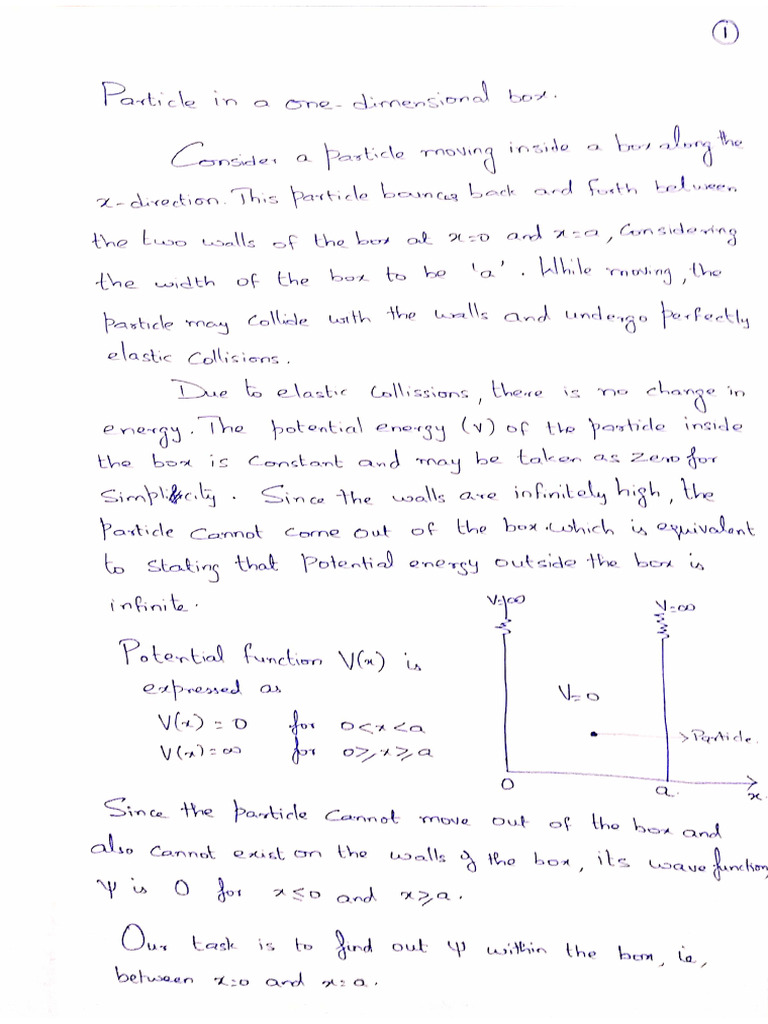 1
Particle in a one-dimensional box.
Consider a particle moving inside a box along the
x-direction. This particle bounces back and forth between
the two walls of the box at x=0 and x=a, Considering
the width of the box to be 'a'. While moving, the
particle may collide with the walls and undergo perfectly
elastic collisions.
Due to elastic collissions, there is no change in
energy. The potential energy (V) of the particle inside
the box is constant and may be taken as zero for
simplicity. Since the walls are infinitely high, the
particle cannot come out of the box. which is equivalent
to stating that potential energy outside the box is
infinite.
V=∞
V=∞
Potential function V(x) is
expressed as
V=0
V(x) = 0 for 0<x<a
V(x) = ∞ for 0≥x≥a
Particle.
0
a.
x.
Since the particle cannot move out of the box and
also cannot exist on the walls of the box, its wave function,
ψ is 0 for x≤0 and x≥a.
Our task is to find out ψ within the box, ie,
between x=0 and x=a.